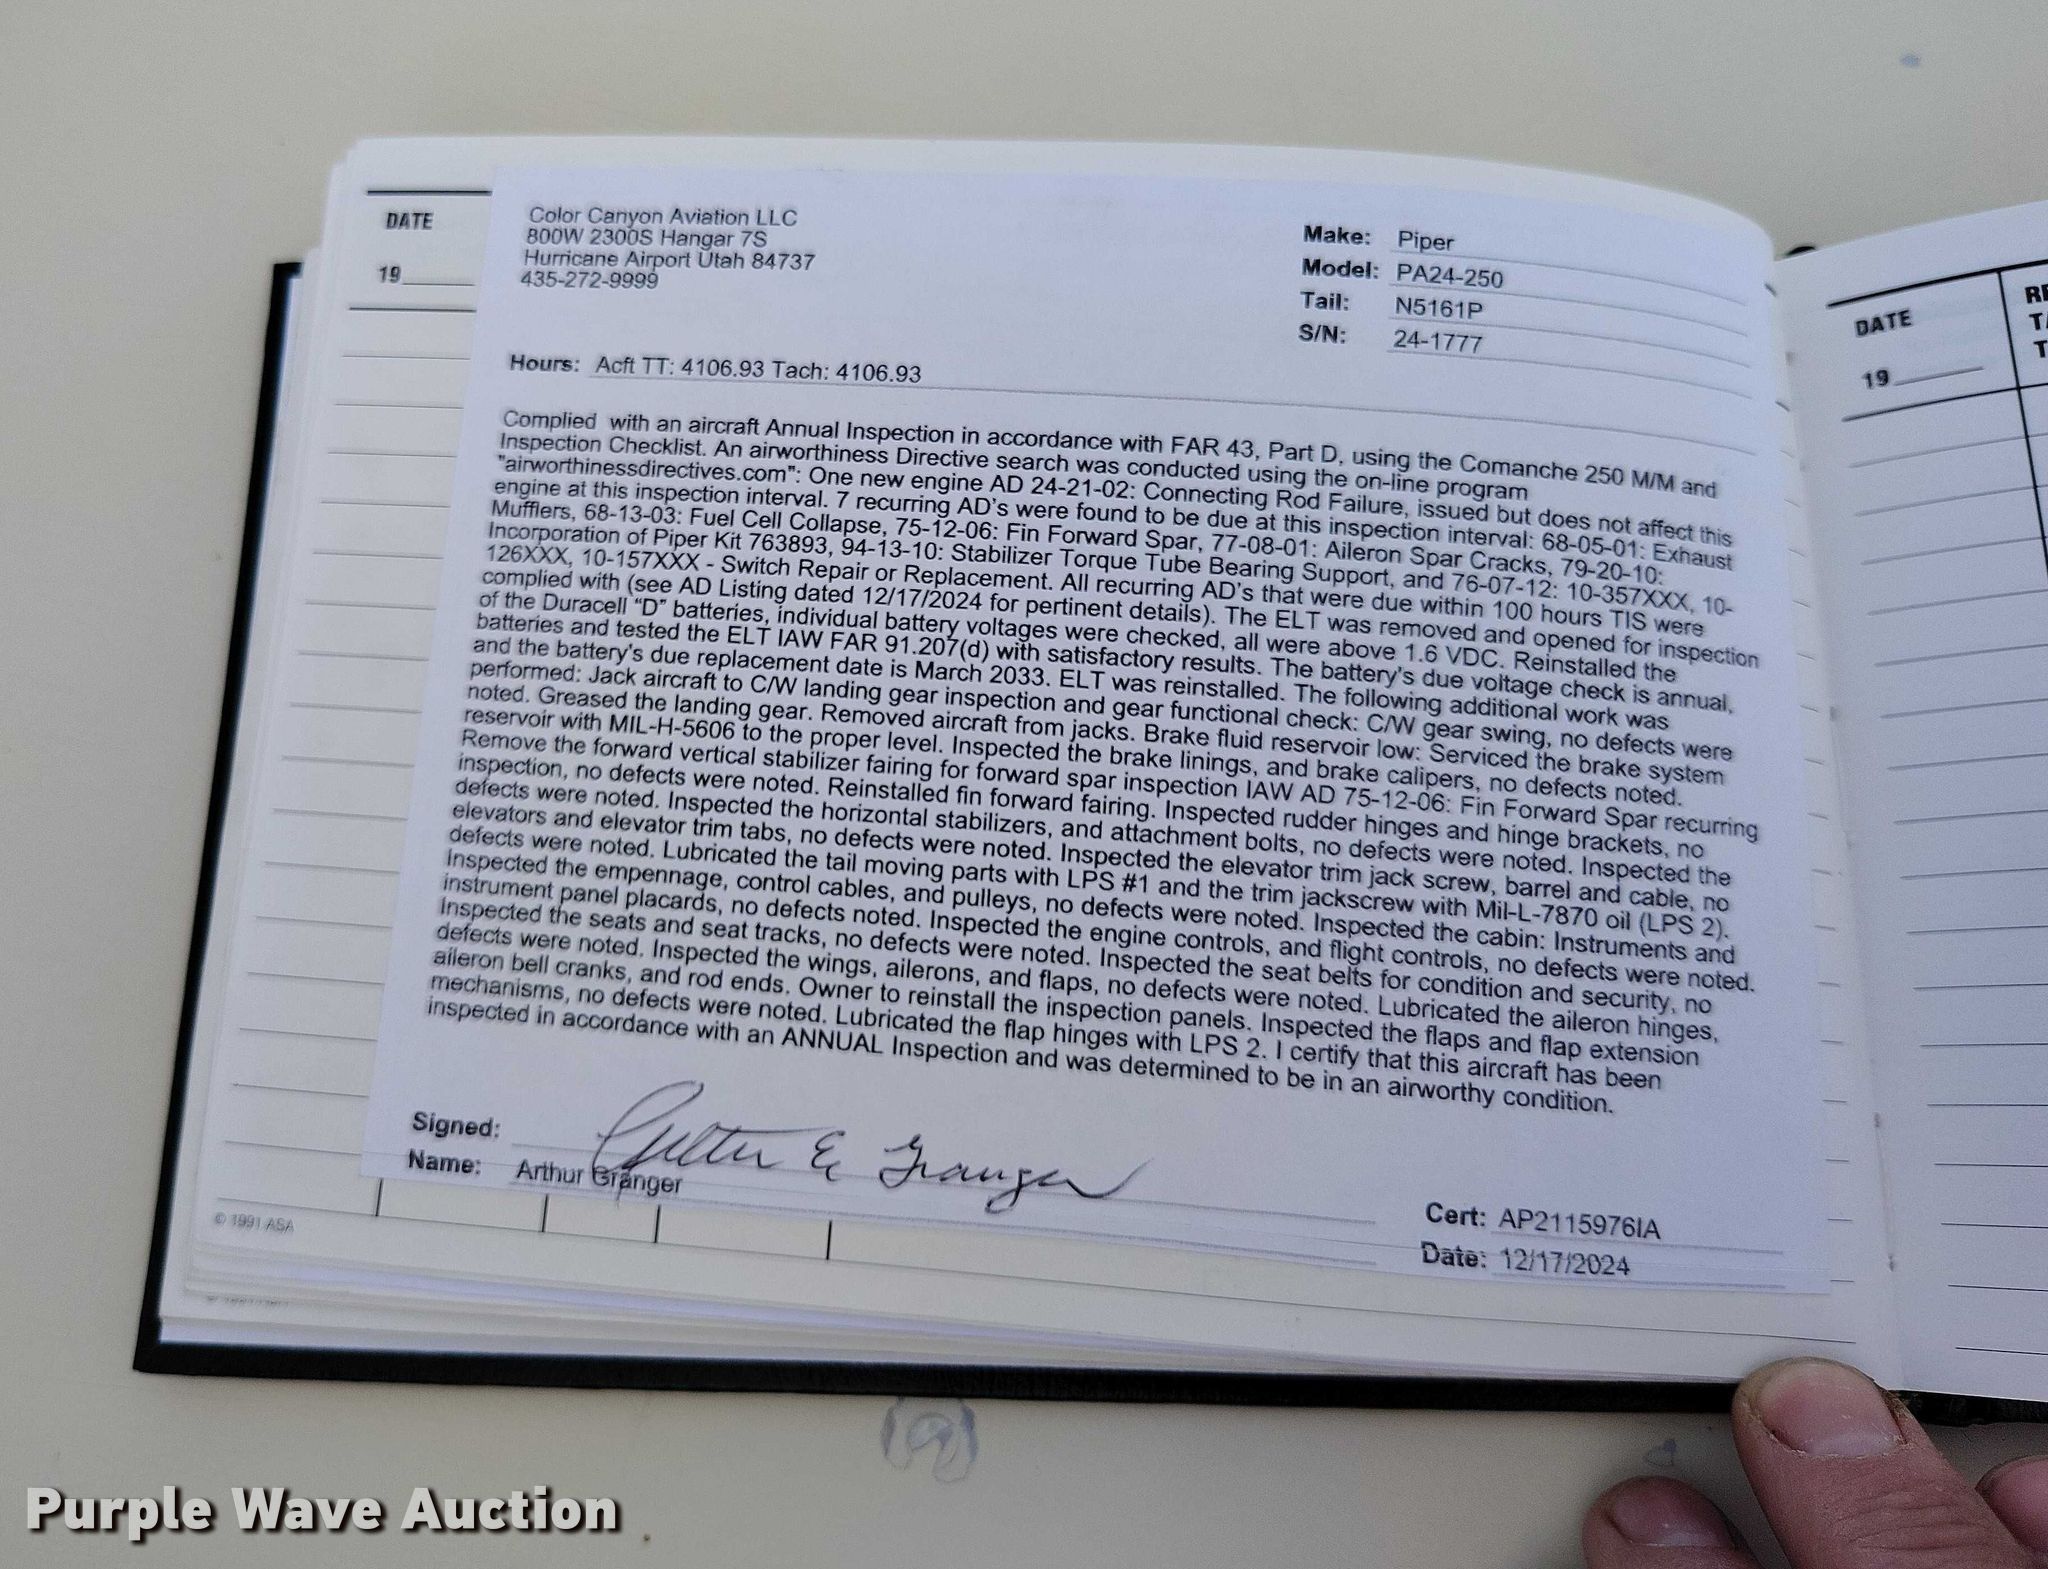 DATE
19
Color Canyon Aviation LLC
800W 2300S Hangar 7S
Hurricane Airport Utah 84737
435-272-9999
Make: Piper
Model: PA24-250
Tail: N5161P
S/N: 24-1777
Hours: Acft TT: 4106.93 Tach: 4106.93
Complied with an aircraft Annual Inspection in accordance with FAR 43, Part D, using the Comanche 250 M/M and
Inspection Checklist. An airworthiness Directive search was conducted using the on-line program
"airworthinessdirectives.com": One new engine AD 24-21-02: Connecting Rod Failure, issued but does not affect this
engine at this inspection interval. 7 recurring AD's were found to be due at this inspection interval: 68-05-01: Exhaust
Mufflers, 68-13-03: Fuel Cell Collapse, 75-12-06: Fin Forward Spar, 77-08-01: Aileron Spar Cracks, 79-20-10:
Incorporation of Piper Kit 763893, 94-13-10: Stabilizer Torque Tube Bearing Support, and 76-07-12: 10-357XXX, 10-
126XXX, 10-157XXX - Switch Repair or Replacement. All recurring AD's that were due within 100 hours TIS were
complied with (see AD Listing dated 12/17/2024 for pertinent details). The ELT was removed and opened for inspection
of the Duracell “D” batteries, individual battery voltages were checked, all were above 1.6 VDC. Reinstalled the
batteries and tested the ELT IAW FAR 91.207(d) with satisfactory results. The battery's due voltage check is annual,
and the battery's due replacement date is March 2033. ELT was reinstalled. The following additional work was
performed: Jack aircraft to C/W landing gear inspection and gear functional check: C/W gear swing, no defects were
noted. Greased the landing gear. Removed aircraft from jacks. Brake fluid reservoir low: Serviced the brake system
reservoir with MIL-H-5606 to the proper level. Inspected the brake linings, and brake calipers, no defects noted.
Remove the forward vertical stabilizer fairing for forward spar inspection IAW AD 75-12-06: Fin Forward Spar recurring
inspection, no defects were noted. Reinstalled fin forward fairing. Inspected rudder hinges and hinge brackets, no
defects were noted. Inspected the horizontal stabilizers, and attachment bolts, no defects were noted. Inspected the
elevators and elevator trim tabs, no defects were noted. Inspected the elevator trim jack screw, barrel and cable, no
defects were noted. Lubricated the tail moving parts with LPS #1 and the trim jackscrew with Mil-L-7870 oil (LPS 2).
Inspected the empennage, control cables, and pulleys, no defects were noted. Inspected the cabin: Instruments and
instrument panel placards, no defects noted. Inspected the engine controls, and flight controls, no defects were noted.
Inspected the seats and seat tracks, no defects were noted. Inspected the seat belts for condition and security, no
defects were noted. Inspected the wings, ailerons, and flaps, no defects were noted. Lubricated the aileron hinges,
aileron bell cranks, and rod ends. Owner to reinstall the inspection panels. Inspected the flaps and flap extension
mechanisms, no defects were noted. Lubricated the flap hinges with LPS 2. I certify that this aircraft has been
inspected in accordance with an ANNUAL Inspection and was determined to be in an airworthy condition.
Signed: Arthur E Granger
Name: Arthur Granger
Cert: AP2115976IA
Date: 12/17/2024
© 1991 ASA
DATE
19
Purple Wave Auction